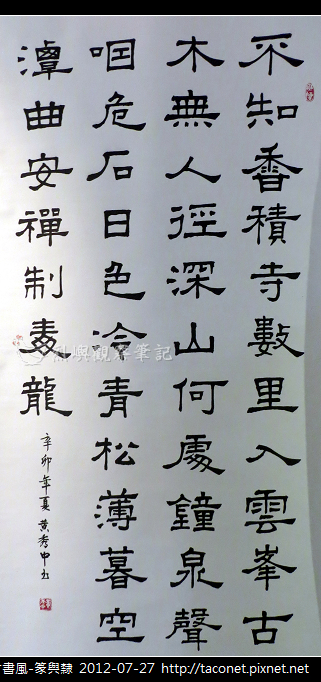 不知香積寺數里入雲峯古
木無人徑深山何處鐘泉聲
咽危石日色冷青松薄暮空
潭曲安禪制毒龍
辛卯年夏 黃秀中书
書風-篆與隸 2012-07-27 http://taconet.pixnet.net